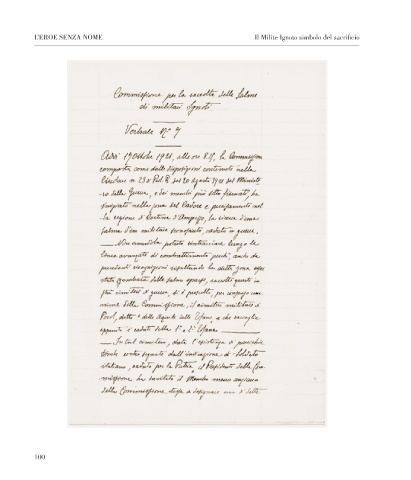 L'EROE SENZA NOME
Il Milite Ignoto simbolo del sacrificio
Commissione per la raccolta delle Salme
di militari Ignoti
Verbale N° 7
Addì 19 Ottobre 1921, alle ore 8.15, la Commissione
composta come dalle disposizioni contenute nella
Circolare n 23 del 20 Agosto 1921 del Ministe-
ro della Guerra, e dei membri più sotto firmati, ha
nella zona del Cadore e precisamente nel-
la regione di Cortina d'Ampezzo, la ricerca d'una
salma d'un militare sconosciuto, caduto in guerra.
Non potuto rintracciare lungo la
linea avanzata di combattimento perché, anche da
precedenti ricognizioni risultando la detta zona
stata delle salme sparse, raccolte queste in
cimiteri di guerra, si è prescelto, per comune
della Commissione, il cimitero militare di
Pocol, detto
appunto i caduti della 1ª e 2ª Tofana.
In tal cimitero, data l'esistenza di parecchie
tombe contrassegnate dall'iscrizione di "Soldato
italiano, caduto per la Patria", il Presidente della Com-
missione ha invitato il Membro meno anziano
della Commissione stessa a designare una di dette
100